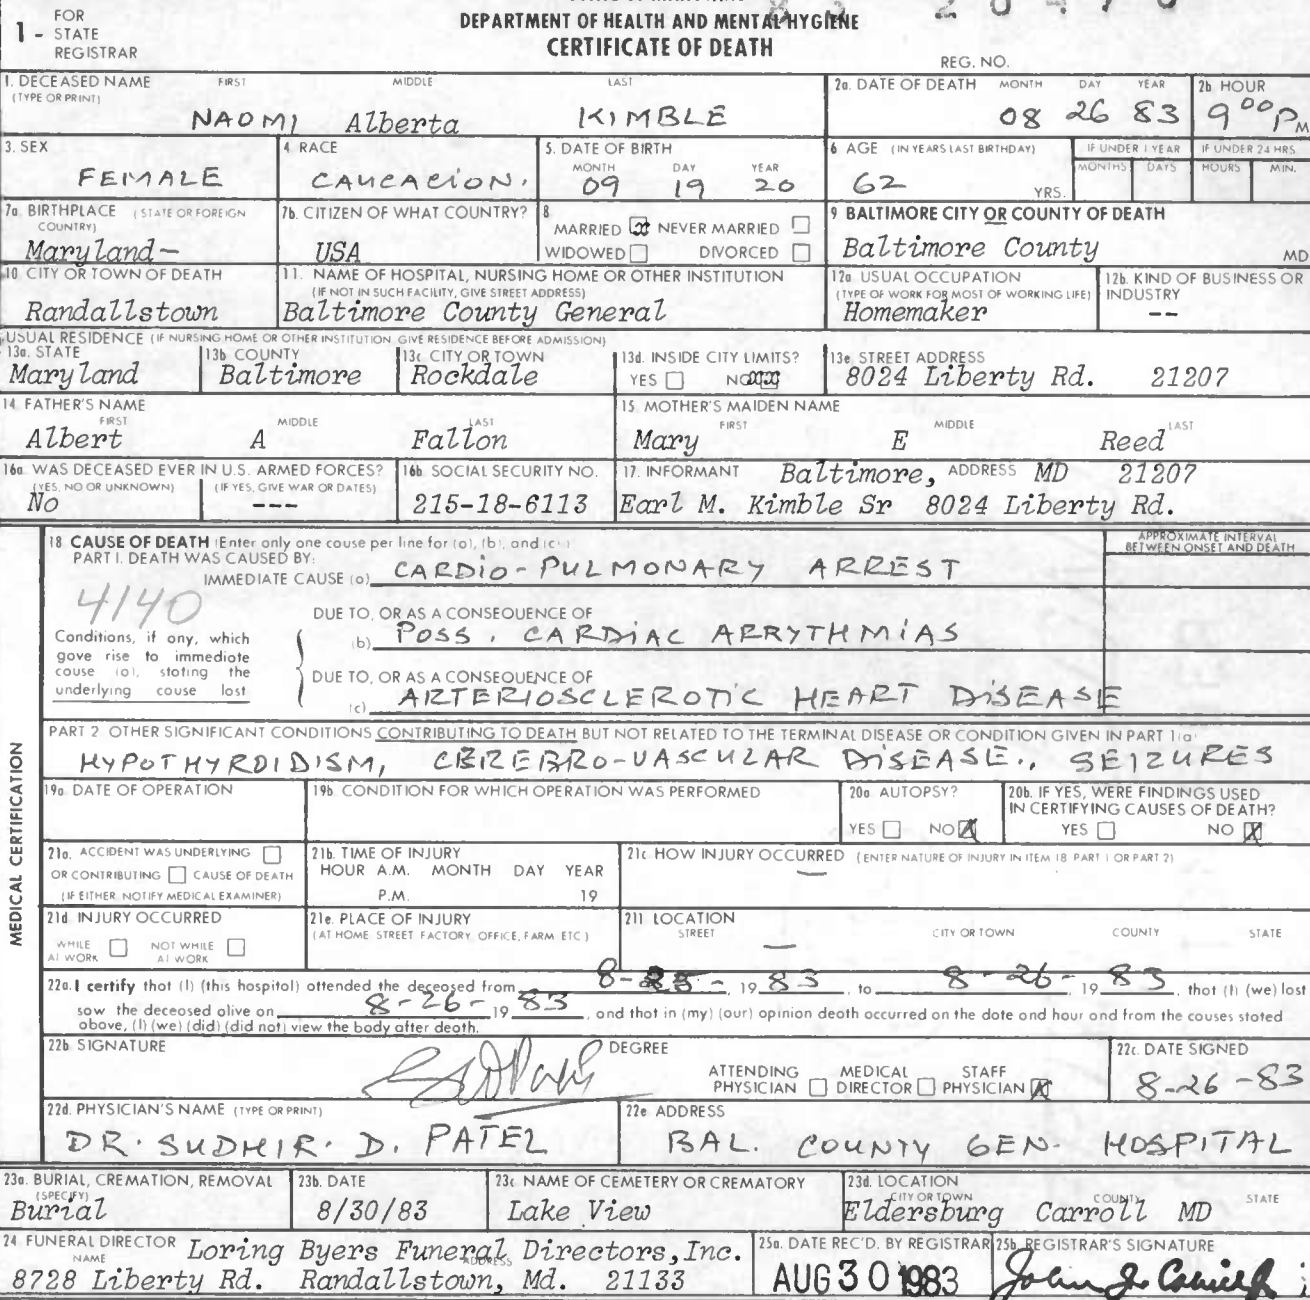 1 - FOR STATE REGISTRAR
DEPARTMENT OF HEALTH AND MENTAL HYGIENE
CERTIFICATE OF DEATH
REG. NO.
1. DECEASED NAME (TYPE OR PRINT) FIRST MIDDLE LAST
NAOMI Alberta KIMBLE
2a. DATE OF DEATH MONTH DAY YEAR
08 26 83
2b HOUR
9 00 P M
3. SEX
FEMALE
4. RACE
CAUCACION.
5. DATE OF BIRTH
MONTH DAY YEAR
09 19 20
6 AGE (IN YEARS LAST BIRTHDAY)
62 YRS.
IF UNDER 1 YEAR
MONTHS DAYS
IF UNDER 24 HRS
HOURS MIN.
7a. BIRTHPLACE (STATE OR FOREIGN COUNTRY)
Maryland-
7b. CITIZEN OF WHAT COUNTRY?
USA
8
MARRIED x NEVER MARRIED
WIDOWED DIVORCED
9 BALTIMORE CITY OR COUNTY OF DEATH
Baltimore County MD
10 CITY OR TOWN OF DEATH
Randallstown
11. NAME OF HOSPITAL, NURSING HOME OR OTHER INSTITUTION
(IF NOT IN SUCH FACILITY, GIVE STREET ADDRESS)
Baltimore County General
12a. USUAL OCCUPATION
(TYPE OF WORK FOR MOST OF WORKING LIFE)
Homemaker
12b. KIND OF BUSINESS OR INDUSTRY
--
USUAL RESIDENCE (IF NURSING HOME OR OTHER INSTITUTION GIVE RESIDENCE BEFORE ADMISSION)
13a. STATE
Maryland
13b COUNTY
Baltimore
13c CITY OR TOWN
Rockdale
13d. INSIDE CITY LIMITS?
YES NO xx
13e STREET ADDRESS
8024 Liberty Rd. 21207
14 FATHER'S NAME
FIRST MIDDLE LAST
Albert A Fallon
15. MOTHER'S MAIDEN NAME
FIRST MIDDLE LAST
Mary E Reed
16a. WAS DECEASED EVER IN U.S. ARMED FORCES?
(YES, NO OR UNKNOWN) (IF YES, GIVE WAR OR DATES)
No ---
16b SOCIAL SECURITY NO.
215-18-6113
17. INFORMANT Baltimore, ADDRESS MD 21207
Earl M. Kimble Sr 8024 Liberty Rd.
MEDICAL CERTIFICATION
18 CAUSE OF DEATH (Enter only one cause per line for (a), (b), and (c).)
APPROXIMATE INTERVAL BETWEEN ONSET AND DEATH
PART I. DEATH WAS CAUSED BY:
IMMEDIATE CAUSE (a) CARDIO-PULMONARY ARREST
4140
DUE TO, OR AS A CONSEQUENCE OF
(b) POSS. CARDIAC ARRYTHMIAS
Conditions, if any, which gave rise to immediate cause (a), stating the underlying cause last
DUE TO, OR AS A CONSEQUENCE OF
(c) ARTERIOSCLEROTIC HEART DISEASE
PART 2 OTHER SIGNIFICANT CONDITIONS CONTRIBUTING TO DEATH BUT NOT RELATED TO THE TERMINAL DISEASE OR CONDITION GIVEN IN PART 1(a)
HYPOTHYROIDISM, CEREBRO-VASCULAR DISEASE., SEIZURES
19a. DATE OF OPERATION
19b. CONDITION FOR WHICH OPERATION WAS PERFORMED
20a. AUTOPSY?
YES NO X
20b. IF YES, WERE FINDINGS USED IN CERTIFYING CAUSES OF DEATH?
YES NO X
21a. ACCIDENT WAS UNDERLYING
OR CONTRIBUTING CAUSE OF DEATH
(IF EITHER NOTIFY MEDICAL EXAMINER)
21b. TIME OF INJURY
HOUR A.M. MONTH DAY YEAR
P.M. 19
21c. HOW INJURY OCCURRED (ENTER NATURE OF INJURY IN ITEM 18 PART 1 OR PART 2)
—
21d. INJURY OCCURRED
WHILE AT WORK NOT WHILE AT WORK
21e. PLACE OF INJURY
(AT HOME STREET FACTORY, OFFICE, FARM ETC.)
21f LOCATION
STREET CITY OR TOWN COUNTY STATE
—
22a. I certify that (I) (this hospital) attended the deceased from 8-25-, 19 83, to 8-26-, 19 83, that (I) (we) last
saw the deceased alive on 8-26- 19 83, and that in (my) (our) opinion death occurred on the date and hour and from the causes stated
above, (I) (we) (did) (did not) view the body after death.
22b SIGNATURE
DEGREE
ATTENDING PHYSICIAN MEDICAL DIRECTOR STAFF PHYSICIAN X
22c. DATE SIGNED
8-26-83
22d. PHYSICIAN'S NAME (TYPE OR PRINT)
DR. SUDHIR. D. PATEL
22e ADDRESS
BAL. COUNTY GEN. HOSPITAL
23a. BURIAL, CREMATION, REMOVAL (SPECIFY)
Burial
23b. DATE
8/30/83
23c NAME OF CEMETERY OR CREMATORY
Lake View
23d. LOCATION
CITY OR TOWN COUNTY STATE
Eldersburg Carroll MD
24 FUNERAL DIRECTOR
NAME ADDRESS
Loring Byers Funeral Directors, Inc.
8728 Liberty Rd. Randallstown, Md. 21133
25a. DATE REC'D. BY REGISTRAR
AUG 30 1983
25b. REGISTRAR'S SIGNATURE